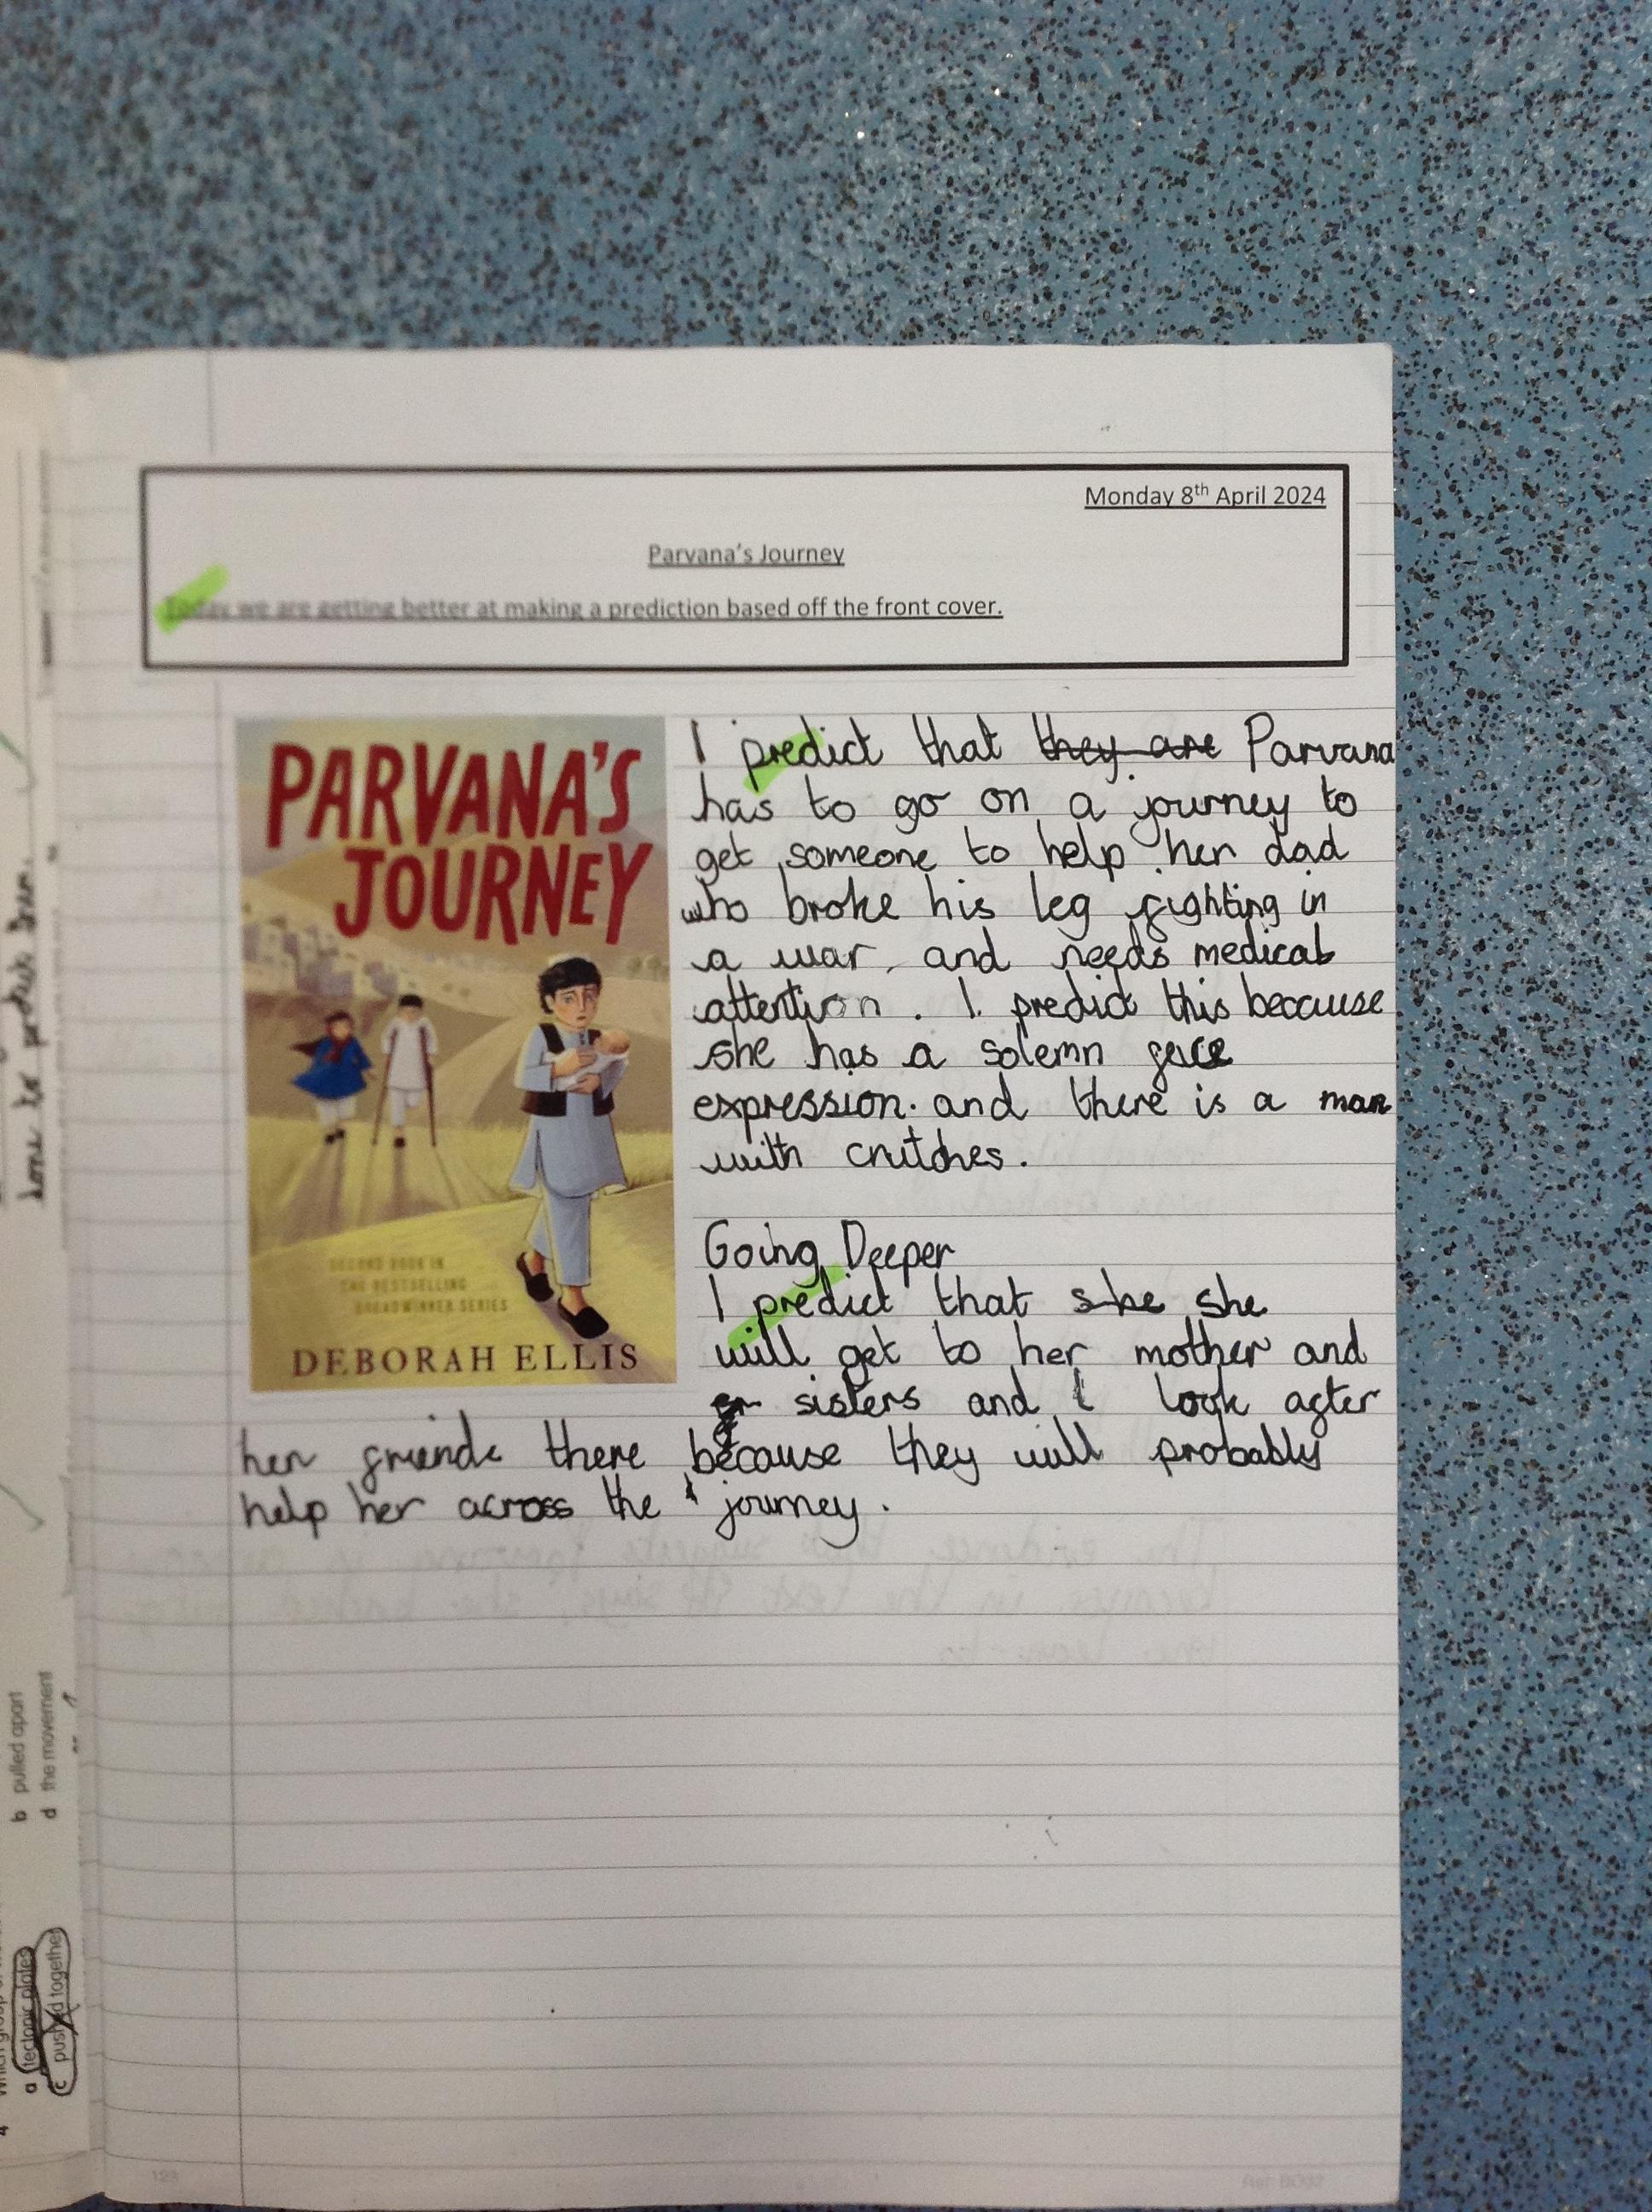 Monday 8th April 2024
Parvana's Journey
Today we are getting better at making a prediction based off the front cover.
PARVANA'S
JOURNEY
SECOND BOOK IN
THE BESTSELLING
BREADWINNER SERIES
DEBORAH ELLIS
I predict that they are Parvana
has to go on a journey to
get someone to help her dad
who broke his leg fighting in
a war, and needs medical
attention. I predict this because
she has a solemn face
expression. and there is a man
with crutches.
Going Deeper
I predict that she she
will get to her mother and
sisters and look after
her friends there because they will probably
help her across the journey.
done to protect
b pulled apart
d the movement
a tectonic plates
c pushed together
4
123